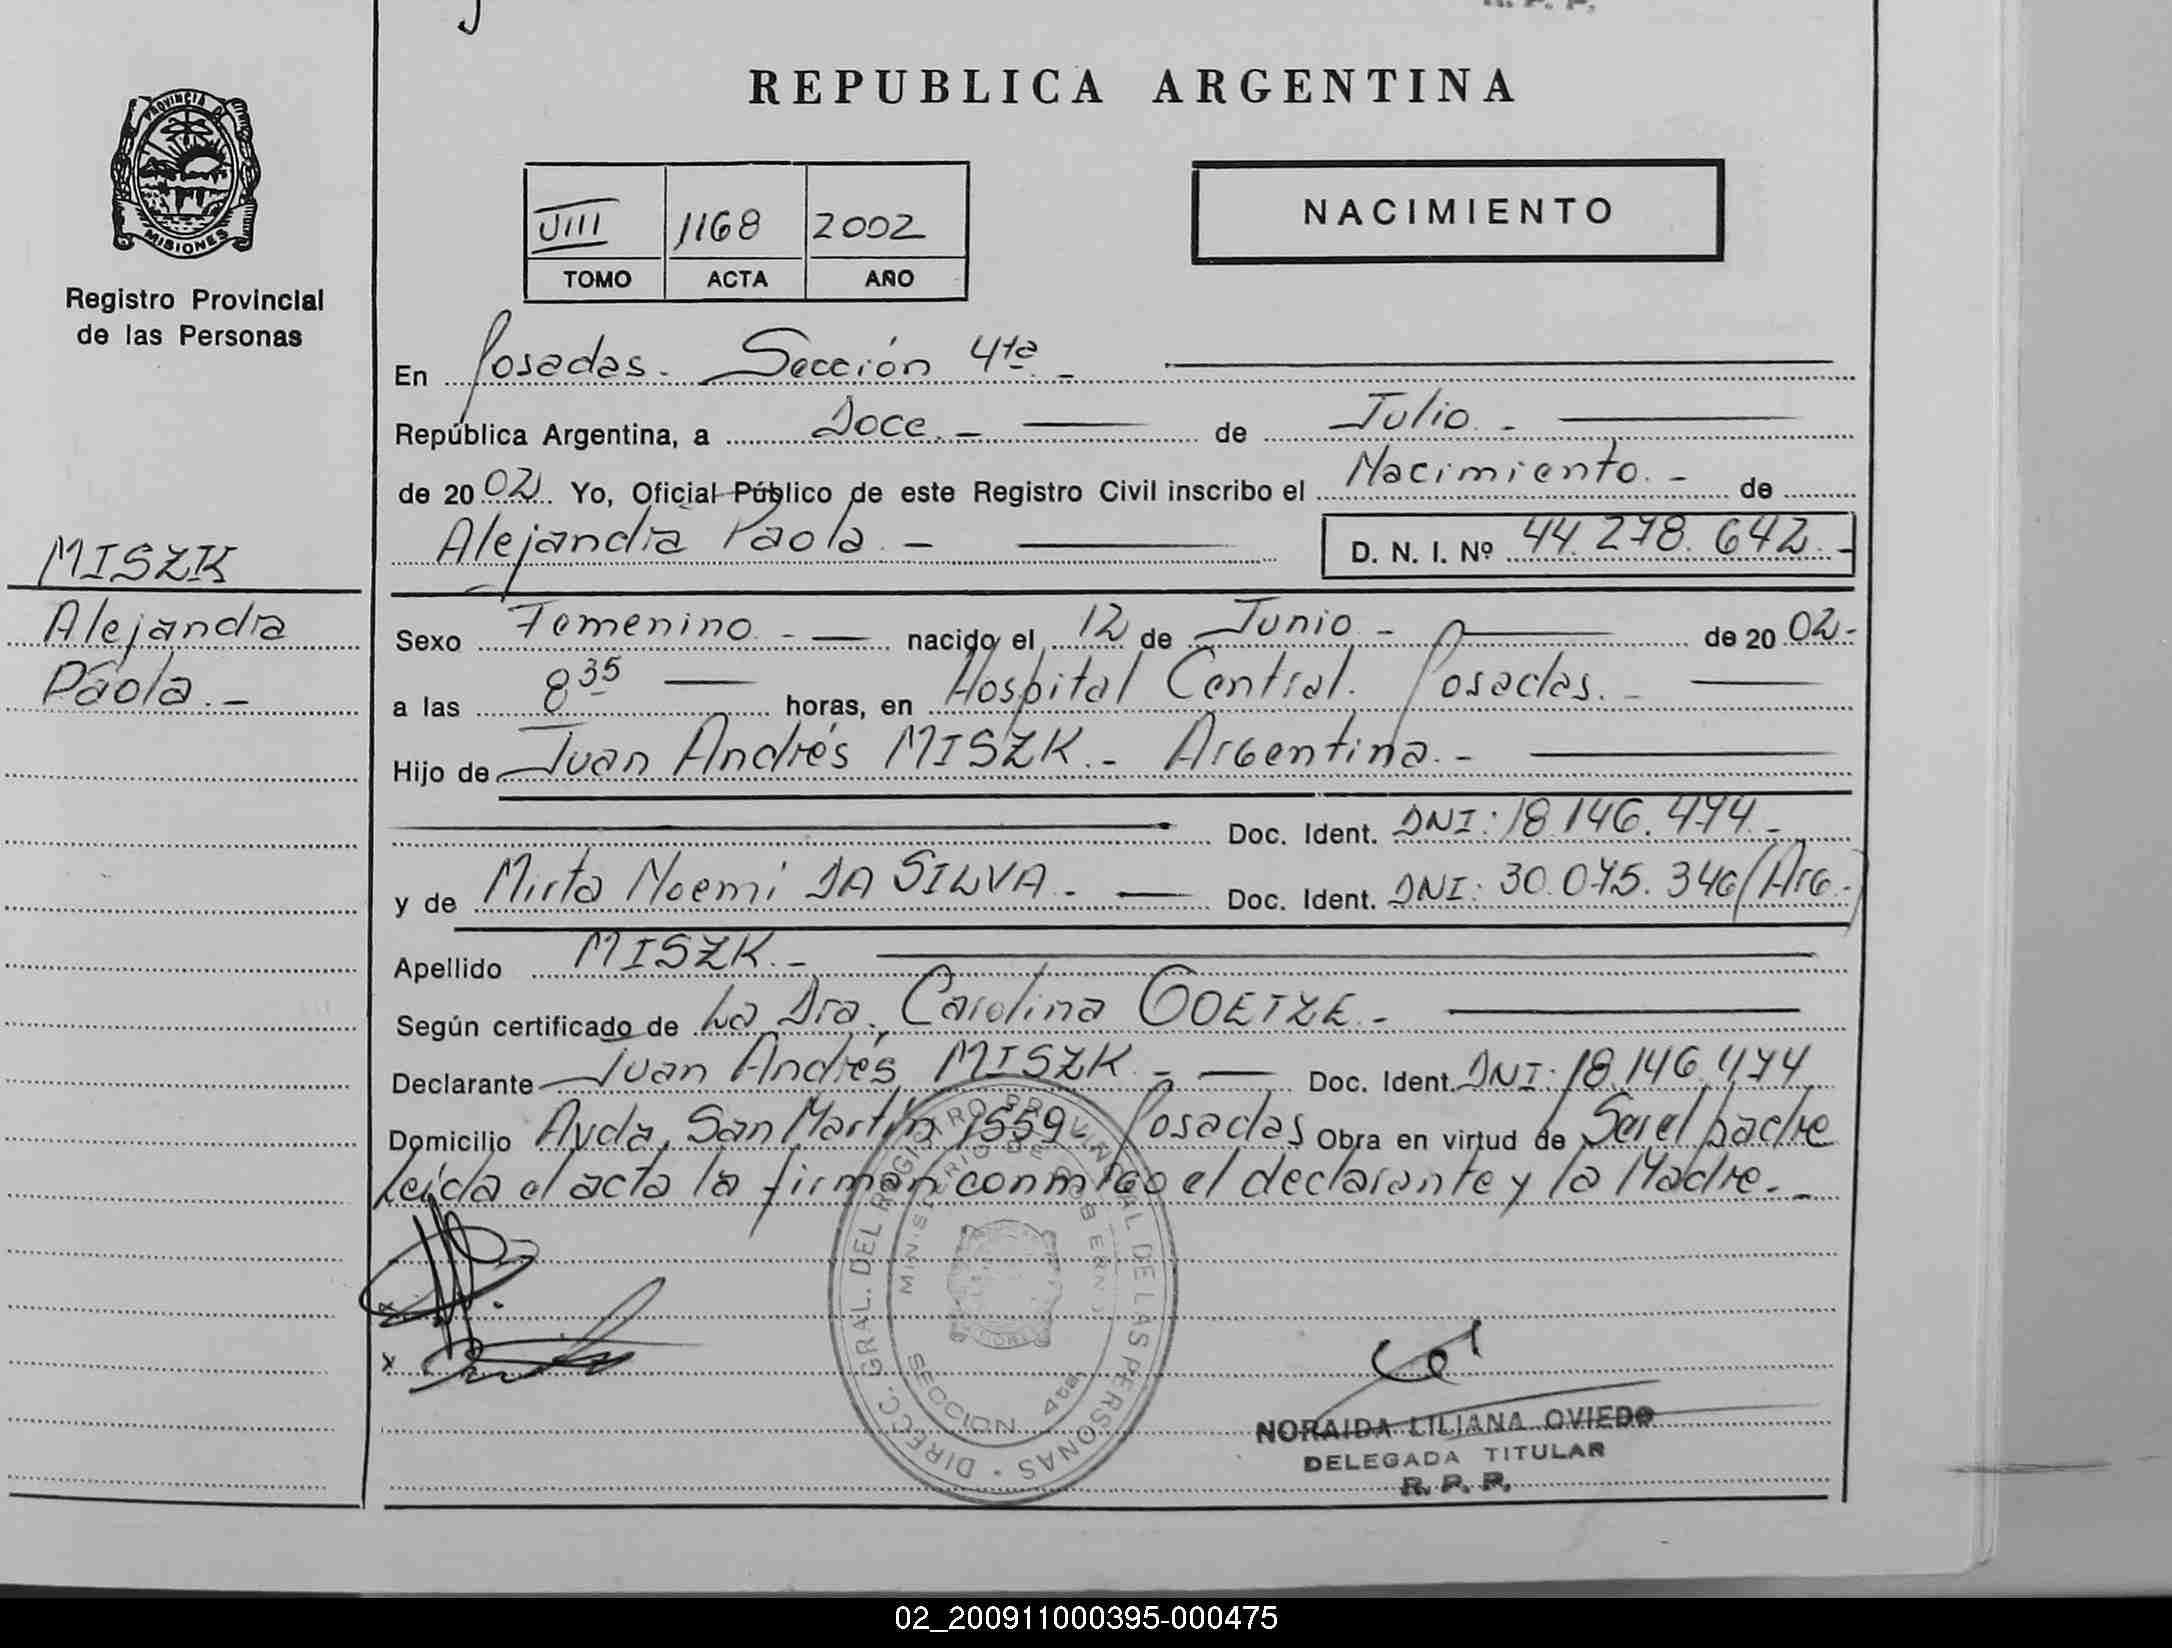 REPUBLICA ARGENTINA
PROVINCIA DE
MISIONES
Registro Provincial
de las Personas
VIII 1168 2002
TOMO ACTA AÑO
NACIMIENTO
En Posadas. Sección 4ta.-
República Argentina, a Doce.- de Julio.-
de 2002 Yo, Oficial Público de este Registro Civil inscribo el Nacimiento.- de
Alejandra Paola.- D. N. I. Nº 44.278.642.-
MISZK
Alejandra
Paola.-
Sexo Femenino.- nacido el 12 de Junio.- de 2002.-
a las 8 35 horas, en Hospital Central. Posadas.-
Hijo de Juan Andrés MISZK.- Argentina.-
Doc. Ident. DNI: 18.146.474.-
y de Mirta Noemi DA SILVA.- Doc. Ident. DNI: 30.075.346/Arg.-
Apellido MISZK.-
Según certificado de La Dra. Carolina GOETZE.-
Declarante Juan Andrés MISZK.- Doc. Ident. DNI: 18.146.474
Domicilio Avda. San Martín 1559- Posadas Obra en virtud de Ser el padre
Leída el acta la firman conmigo el declarante y la Madre.-
DIRECC. GRAL. DEL REGISTRO PROVINCIAL DE LAS PERSONAS
MINISTERIO DE GOBIERNO
SECCION 4ta.
NORAIDA LILIANA OVIEDO
DELEGADA TITULAR
R. P. P.
02_200911000395-000475